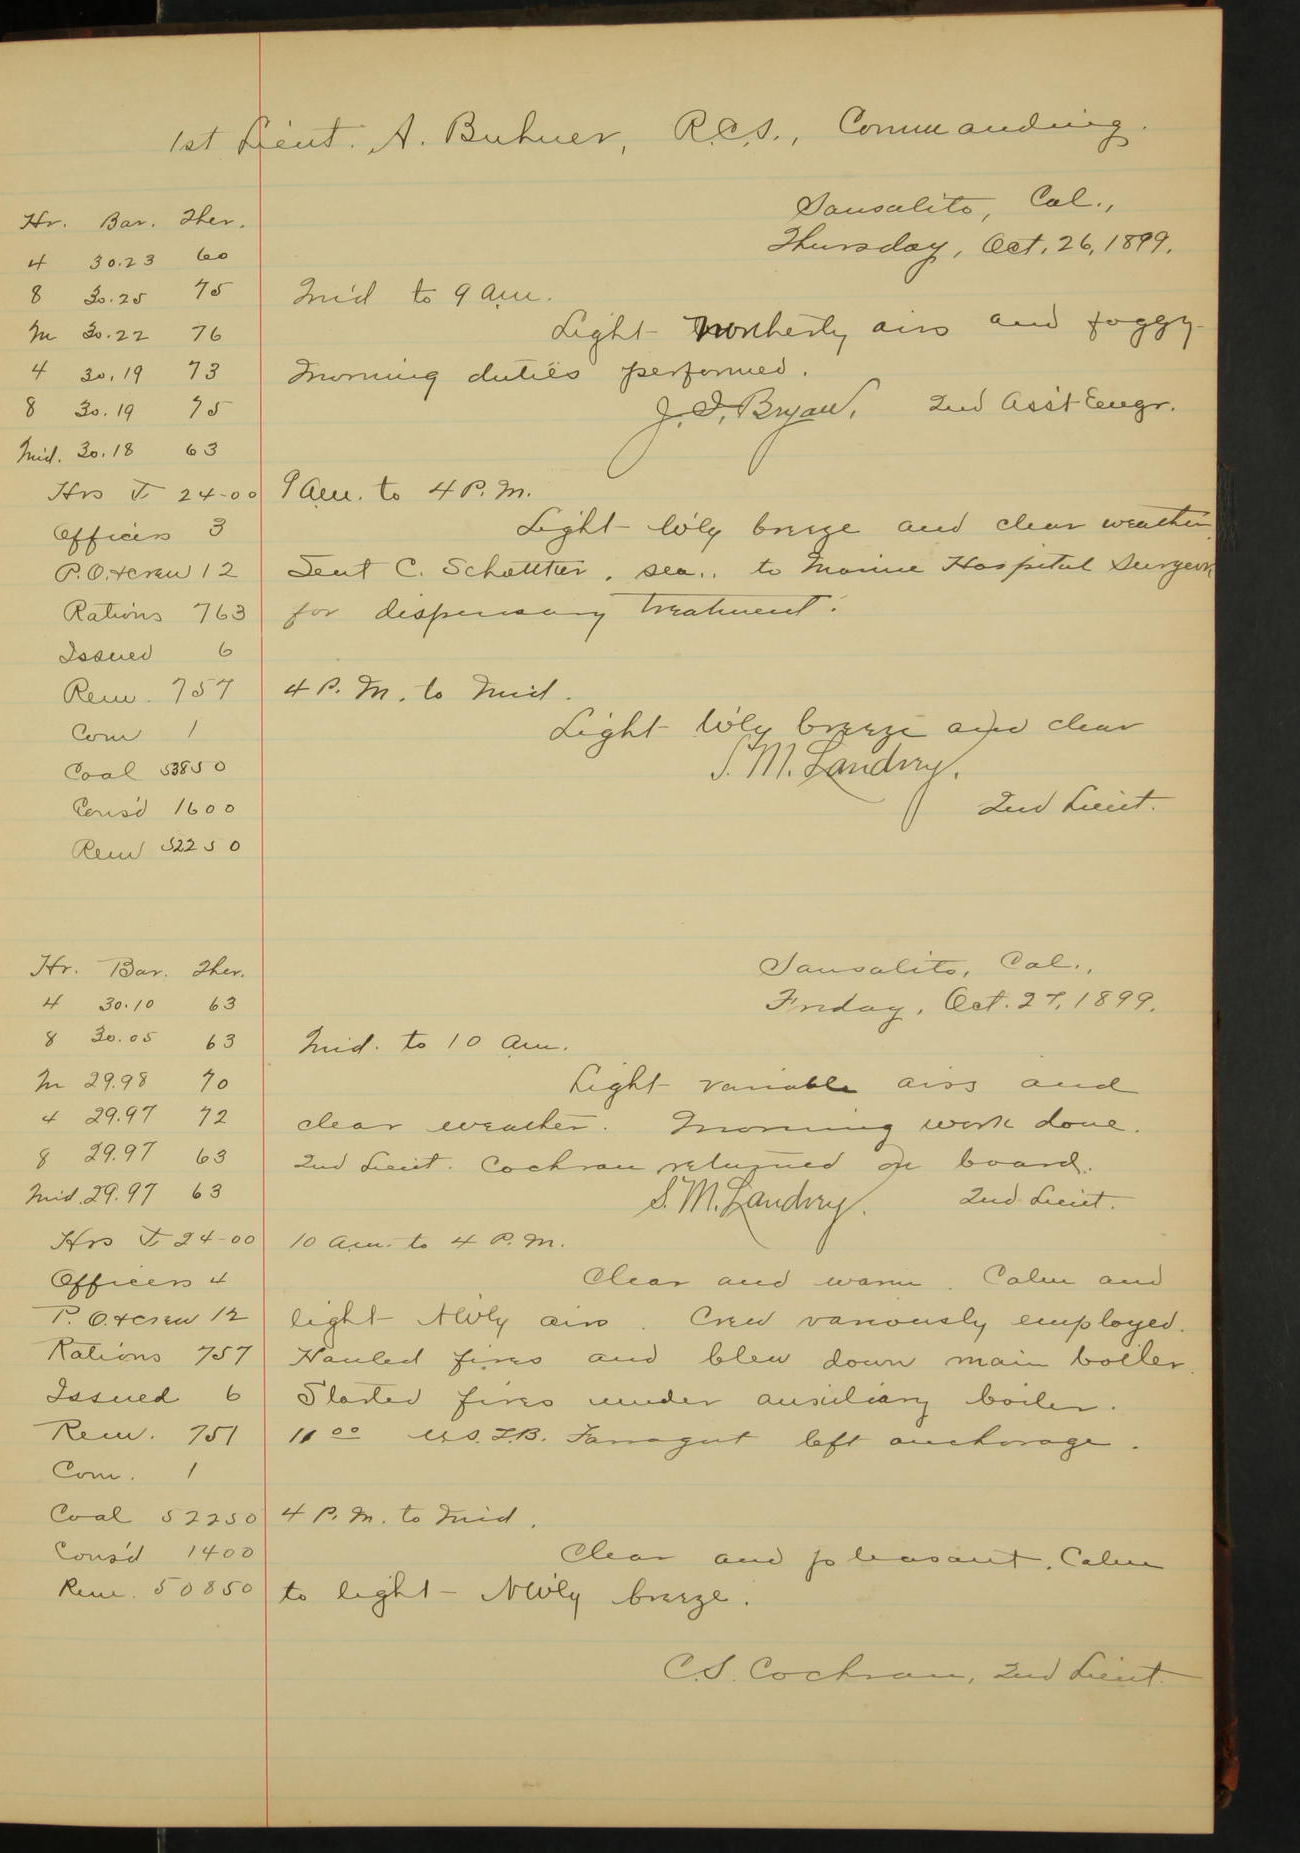 1st Lieut. A. Buhner, R.C.S., Commanding.
Sausalito, Cal.,
Thursday, Oct. 26, 1899.
Hr. Bar. Ther.
4 30.23 60
8 30.25 75
M 30.22 76
4 30.19 73
8 30.19 75
Mid. 30.18 63
Hrs 24-00
Officers 3
P.O.+crew 12
Rations 763
Issued 6
Rem. 757
Com 1
Coal 53850
Cons'd 1600
Rem 52250
Mid to 9 am.
Light northerly airs and foggy
Morning duties performed.
J. I. Bryan, 2nd Ass't Engr.
9 am. to 4 P.M.
Light W'ly breeze and clear weather
Sent C. , sea., to Marine Hospital Surgeon
for dispensary treatment.
4 P.M. to Mid.
Light W'ly breeze and clear
S. M. Landrey.
2nd Lieut.
Sausalito, Cal.,
Friday, Oct. 27, 1899.
Hr. Bar. Ther.
4 30.10 63
8 30.05 63
M 29.98 70
4 29.97 72
8 29.97 63
Mid. 29.97 63
Hrs 24-00
Officers 4
P.O.+crew 12
Rations 757
Issued 6
Rem. 751
Com. 1
Coal 52250
Cons'd 1400
Rem. 50850
Mid. to 10 am.
Light variable airs and
clear weather. Morning work done.
2nd Lieut. Cochran returned on board.
S. M. Landrey. 2nd Lieut.
10 am. to 4 P.M.
Clear and warm. Calm and
light NW'ly airs. Crew variously employed.
Hauled fires and blew down main boiler.
Started fires under auxiliary boiler.
11 00 U.S.T.B. Farragut left anchorage.
4 P.M. to Mid.
Clear and pleasant. Calm
to light NW'ly breeze.
C.S. Cochran, 2nd Lieut.